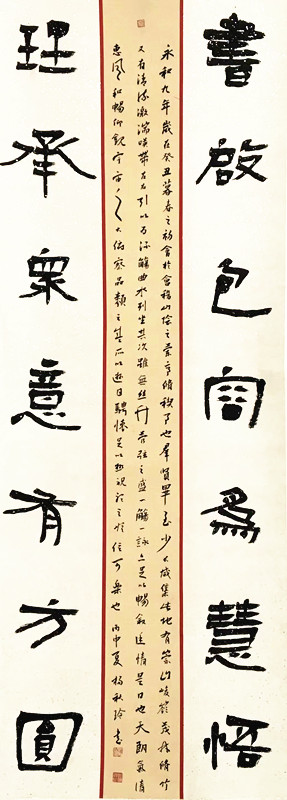 書啟包容為慧悟
永和九年歲在癸丑暮春之初會於會稽山陰之蘭亭脩稧事也群賢畢至少長咸集此地有崇山峻嶺茂林脩竹
又有清流激湍暎帶左右引以為流觴曲水列坐其次雖無絲竹管弦之盛一觴一詠亦足以暢敘幽情是日也天朗氣清
惠風和暢仰觀宇宙之大俯察品類之盛所以遊目騁懷足以極視聽之娛信可樂也 丙申夏楊秋玲書
理承眾意有方圓